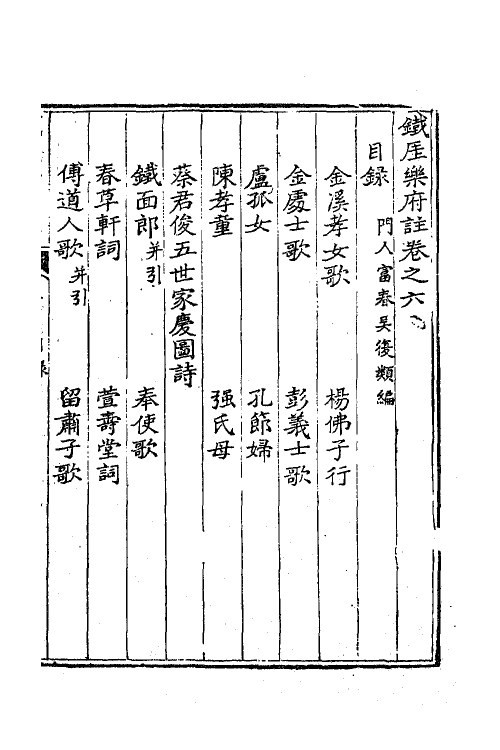 鐵厓樂府註卷之六
目録　門人富春吴復類編
金溪孝女歌　楊佛子行
金處士歌　彭義士歌
盧孤女　孔節婦
陳孝童　强氏母
蔡君俊五世家慶圖詩
鐵面郎并引　奉使歌
春草軒詞　萱壽堂詞
傅道人歌并引　留肅子歌